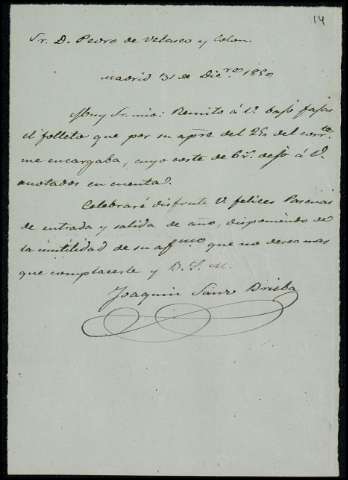 14
Sr. D. Pedro de Velasco y Colon.
Madrid 31 de Dic.re 1880
Muy Sr. mio: Remito á V. bajo fajas
el folleto que por su apre. del 28 del corr.te
me encargaba, cuyo coste de 6 r.s dejo á V.
anotados en cuenta.
Celebraré disfrute V. felices Pascuas
de entrada y salida de año, disponiendo de
la inutilidad de su affmo que no desea mas
que complacerle y B. S. M.
Joaquin Sanz